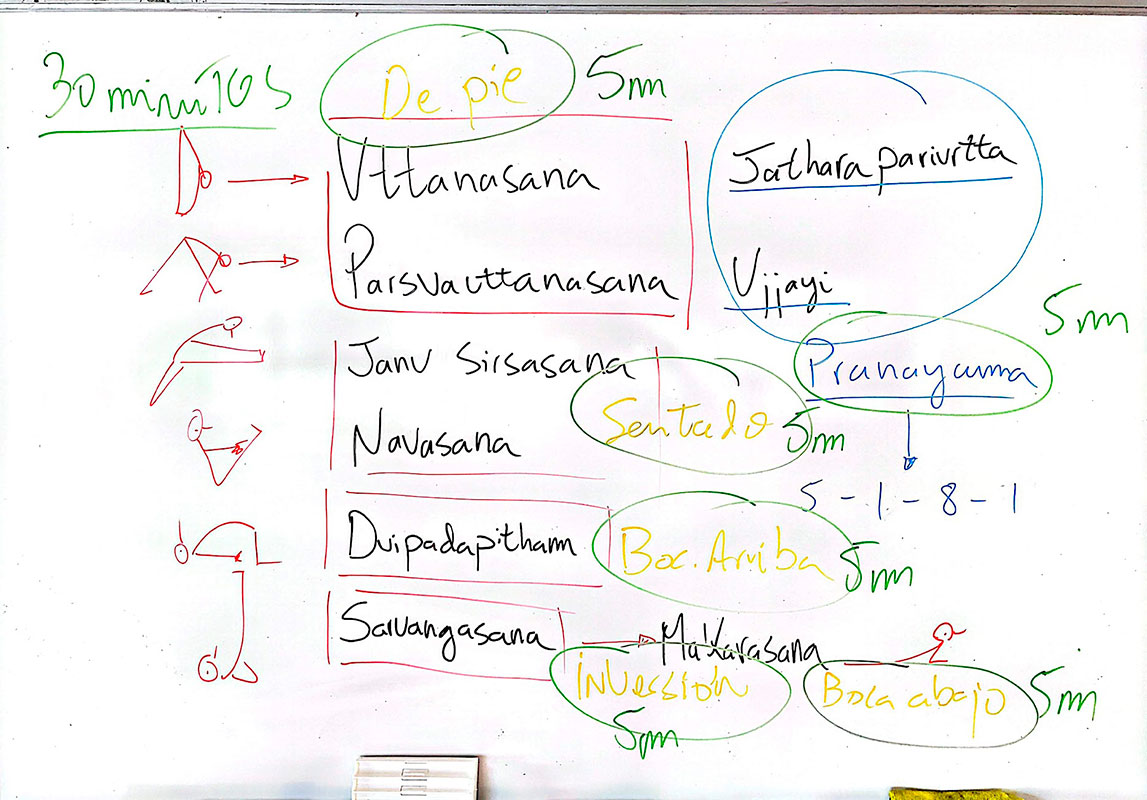 30 minutos
De pie 5m
Uttanasana
Parsvauttanasana
Janu Sirsasana
Navasana
Sentado 5m
Dvipadapitham
Boc. Arriba 5m
Sarvangasana
Makarasana
Inversión
5m
Boca abajo 5m
Jathara parivrtta
Ujjayi
5m
Pranayama
5 - 1 - 8 - 1